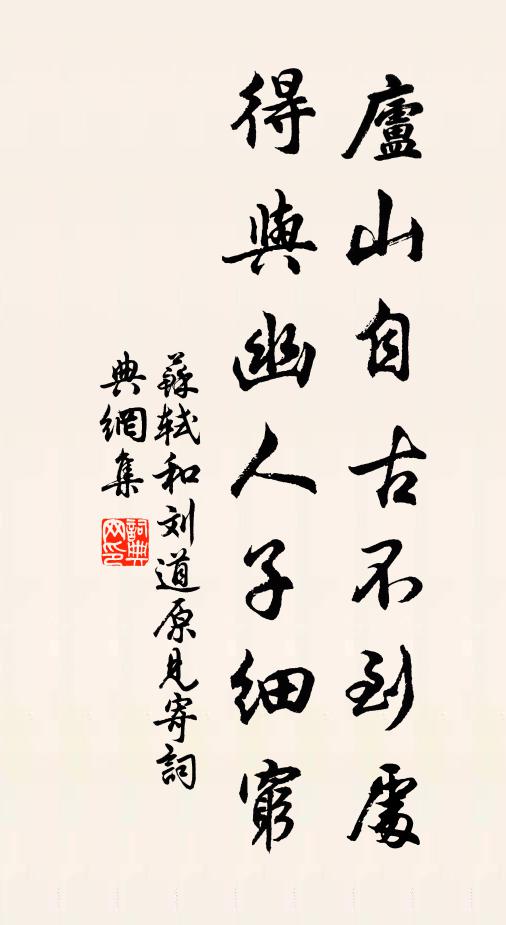 廬山自古不到處
得與幽人子細窮
蘇軾和刘道原見寄詞
典網集
詞典
网印